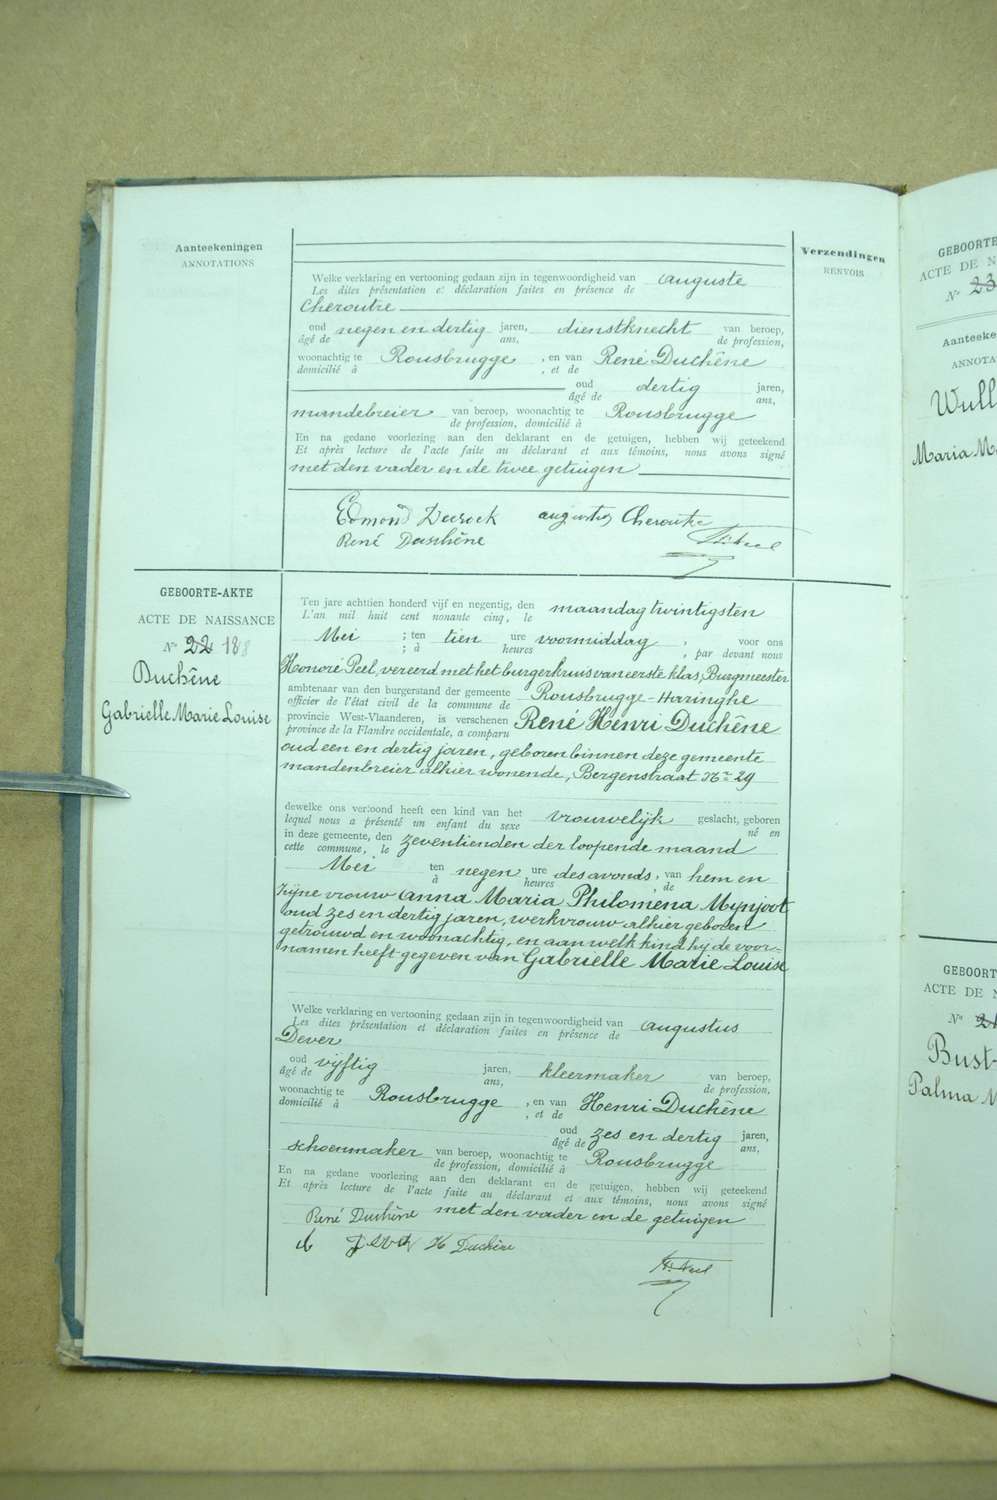 Aanteekeningen
ANNOTATIONS
Verzendingen
RENVOIS
Welke verklaring en vertooning gedaan zijn in tegenwoordigheid van Auguste
Les dites présentation et déclaration faites en présence de
Cheroutre
oud negen en dertig jaren, dienstknecht van beroep,
âgé de ans, de profession,
woonachtig te Rousbrugge, en van René Duchêne
domicilié à , et de
oud dertig jaren,
âgé de ans,
mandebreier van beroep, woonachtig te Rousbrugge
de profession, domicilié à
En na gedane voorlezing aan den deklarant en de getuigen, hebben wij geteekend
Et après lecture de l'acte faite au déclarant et aux témoins, nous avons signé
met den vader en de twee getuigen
Edmond Cheroutre
René Duchêne
GEBOORTE-AKTE
ACTE DE NAISSANCE
N° 22 18
Duchêne
Gabrielle Marie Louise
Ten jare achttien honderd vijf en negentig, den maandag twintigsten
L'an mil huit cent nonante cinq, le
Mei ; ten tien ure voormiddag , voor ons
; à heures , par devant nous
Honoré Peel, vereerd met het burgerkruis van eerste klas, Burgmeester
ambtenaar van den burgerstand der gemeente Rousbrugge-Haringhe
officier de l'état civil de la commune de
provincie West-Vlaanderen, is verschenen René Henri Duchêne
province de la Flandre occidentale, a comparu
oud een en dertig jaren, geboren binnen deze gemeente
mandenbreier alhier wonende, Bergenstraat N° 29
dewelke ons vertoond heeft een kind van het vrouwelijk geslacht, geboren
lequel nous a présenté un enfant du sexe né en
in deze gemeente, den zeventienden der loopende maand
cette commune, le
Mei ten negen ure des avonds, van hem en
à heures , de
zijne vrouw Anna Maria Philomena Mynjoot
oud zes en dertig jaren, werkvrouw alhier geboren
getrouwd en woonachtig, en aan welk kind hij de voor-
namen heeft gegeven van Gabrielle Marie Louise
Welke verklaring en vertooning gedaan zijn in tegenwoordigheid van Augustus
Les dites présentation et déclaration faites en présence de
Dever
oud vijftig jaren, kleermaker van beroep,
âgé de ans, de profession,
woonachtig te Rousbrugge , en van Henri Duchêne
domicilié à , et de
oud zes en dertig jaren,
âgé de ans,
schoenmaker van beroep, woonachtig te Rousbrugge
de profession, domicilié à
En na gedane voorlezing aan den deklarant en de getuigen, hebben wij geteekend
Et après lecture de l'acte faite au déclarant et aux témoins, nous avons signé
met den vader en de getuigen
René Duchêne
H Duchêne
GEBOORTE
ACTE DE N
N° 23
Aanteeke
ANNOTA
Wull
Maria M
GEBOORT
ACTE DE
N°
Bust
Palma M